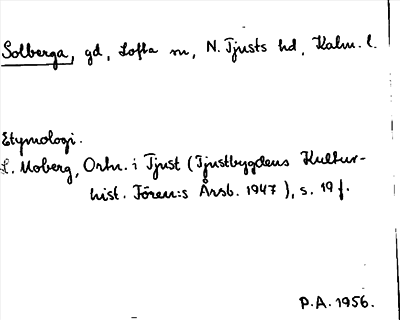 Solberga, gd, Lofta sn, N. Tjusts hd, Kalm. l.
Etymologi.
L. Moberg, Ortn. i Tjust (Tjustbygdens Kultur-
hist. Fören:s Årsb. 1947), s. 19 f.
P.A. 1956.